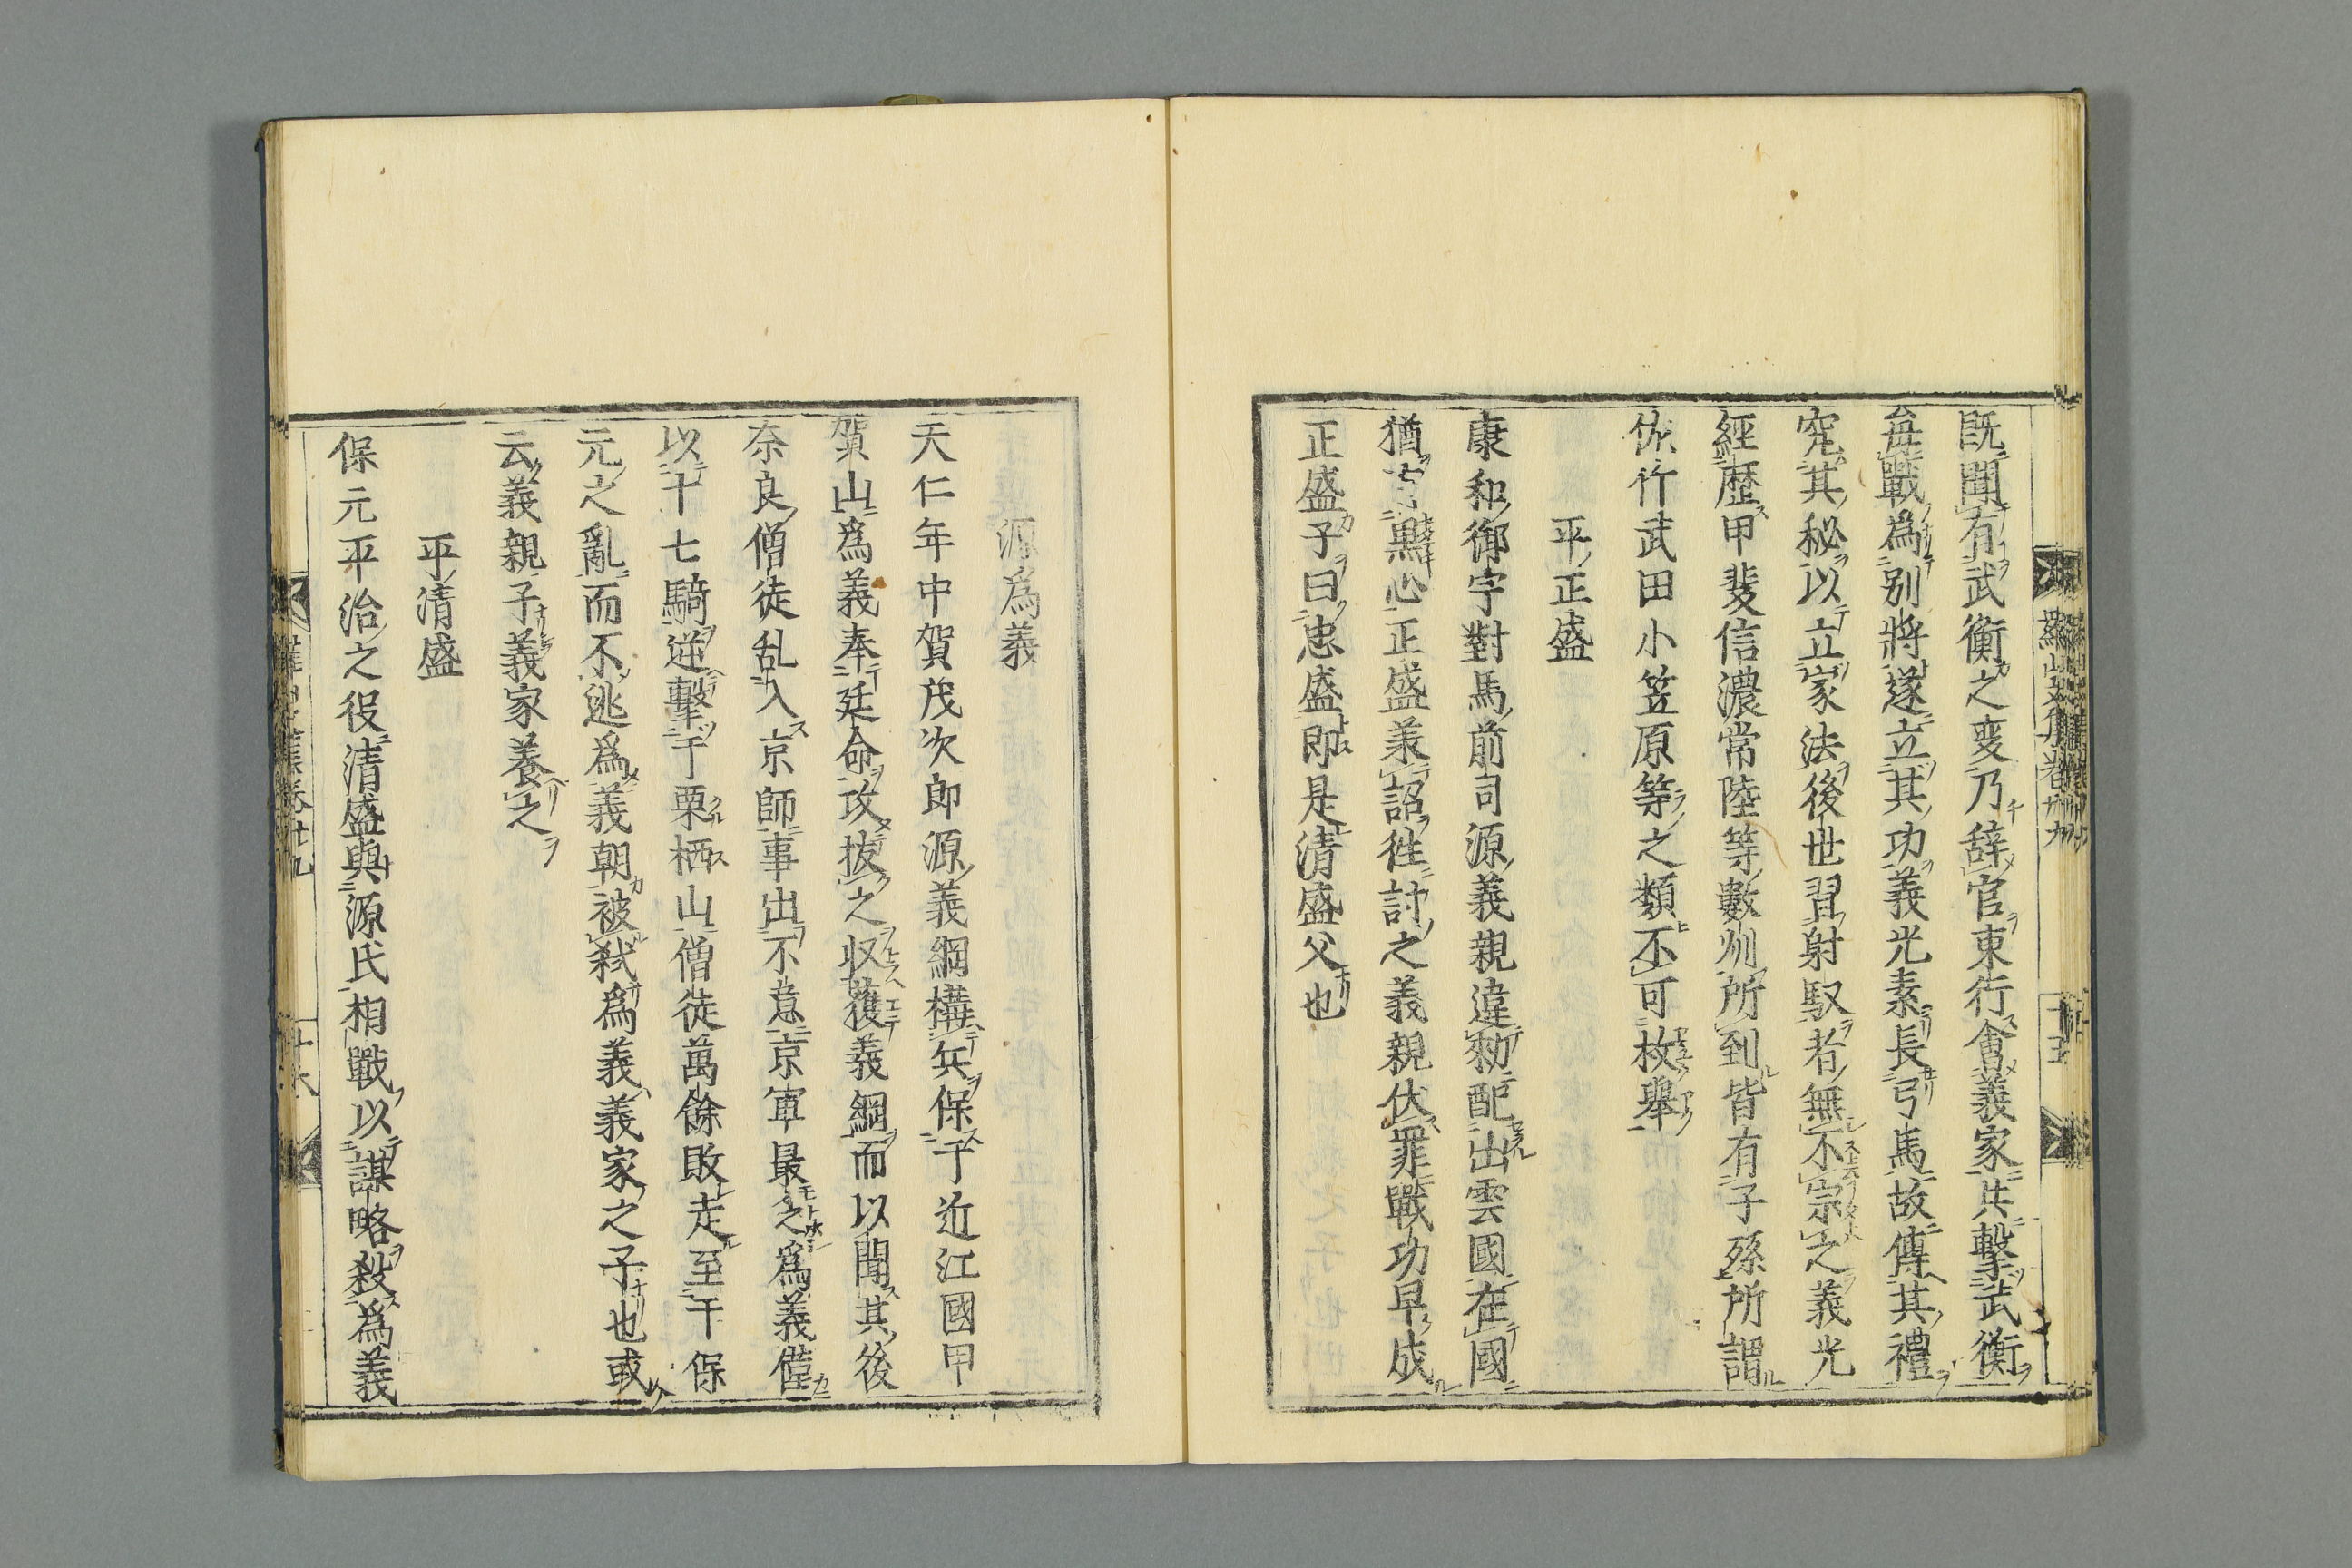 既聞有武衡之変乃辞官東行會義家共擊武衡
每戰為别將遂立其功義光素長弓馬故傳其禮
究其秘以立家法後世習射馭者無不宗之義光
經歷甲斐信濃常陸等數州所到皆有子孫所謂
佐竹武田小笠原等之類不可枚舉
平正盛
康和御宇對馬前司源義親違勅配出雲國在國
猶
黠心正盛兼詔徃討之義親伏罪戰功早成
正盛子曰忠盛即是清盛父也
源爲義
天仁年中賀茂次郎源義綱構兵保于近江國甲
賀山爲義奉廷命攻拔之収獲義綱而以聞其後
奈良僧徒乱入京師事出不意京軍最之爲義僅
以十七騎逆擊于栗栖山僧徒萬餘敗走至于保
元之亂而不逃爲義朝被弑爲義義家之子也或
云義親子義家養之
平清盛
保元平治之役清盛與源氏相戰以謀略殺爲義